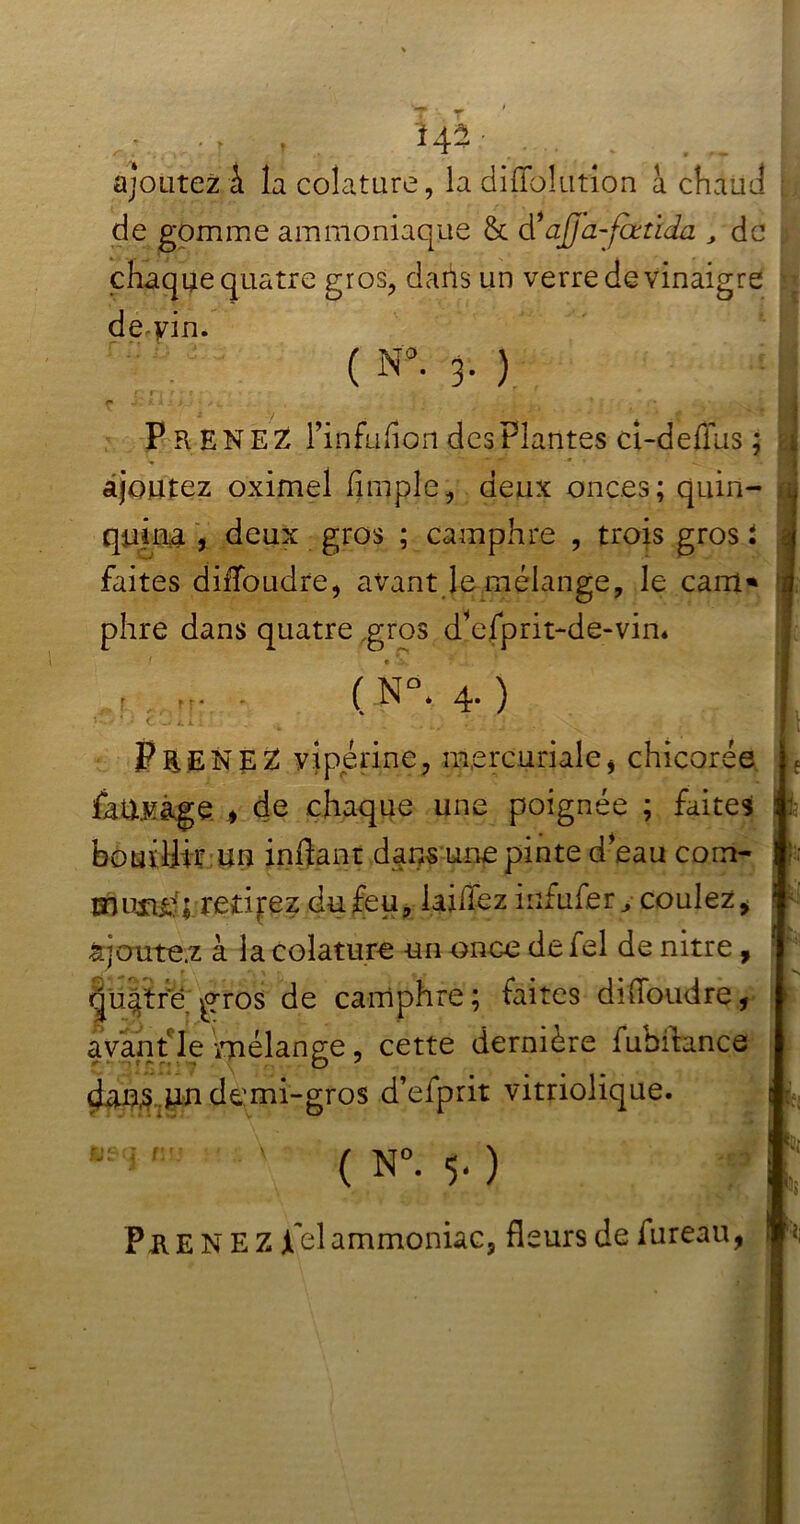 142
ajoutez à la colature, la diſſolution à chaud
de gomme ammoniaque & d'aſſa-fœtida, de
chaque quatre gros, dans un verre de vinaigre
de vin.
( N°. 3. )
PRENEZ l'infuſion des Plantes ci-deſſus ;
ajoutez oximel ſimple, deux onces ; quin-
quina, deux gros ; camphre, trois gros :
faites diſſoudre, avant le mélange, le cam-
phre dans quatre gros d'eſprit-de-vin.
( N°. 4. )
PRENEZ vipérine, mercuriale, chicorée
ſauvage, de chaque une poignée ; faites
bouillir un inſtant dans une pinte d'eau com-
mune ; retirez du feu, laiſſez infuſer, coulez,
ajoutez à la colature un once de ſel de nitre,
quatre gros de camphre ; faites diſſoudre,
avant le mélange, cette dernière ſubſtance
dans un demi-gros d'eſprit vitriolique.
( N°. 5. )
PRENEZ ſel ammoniac, fleurs de ſureau,